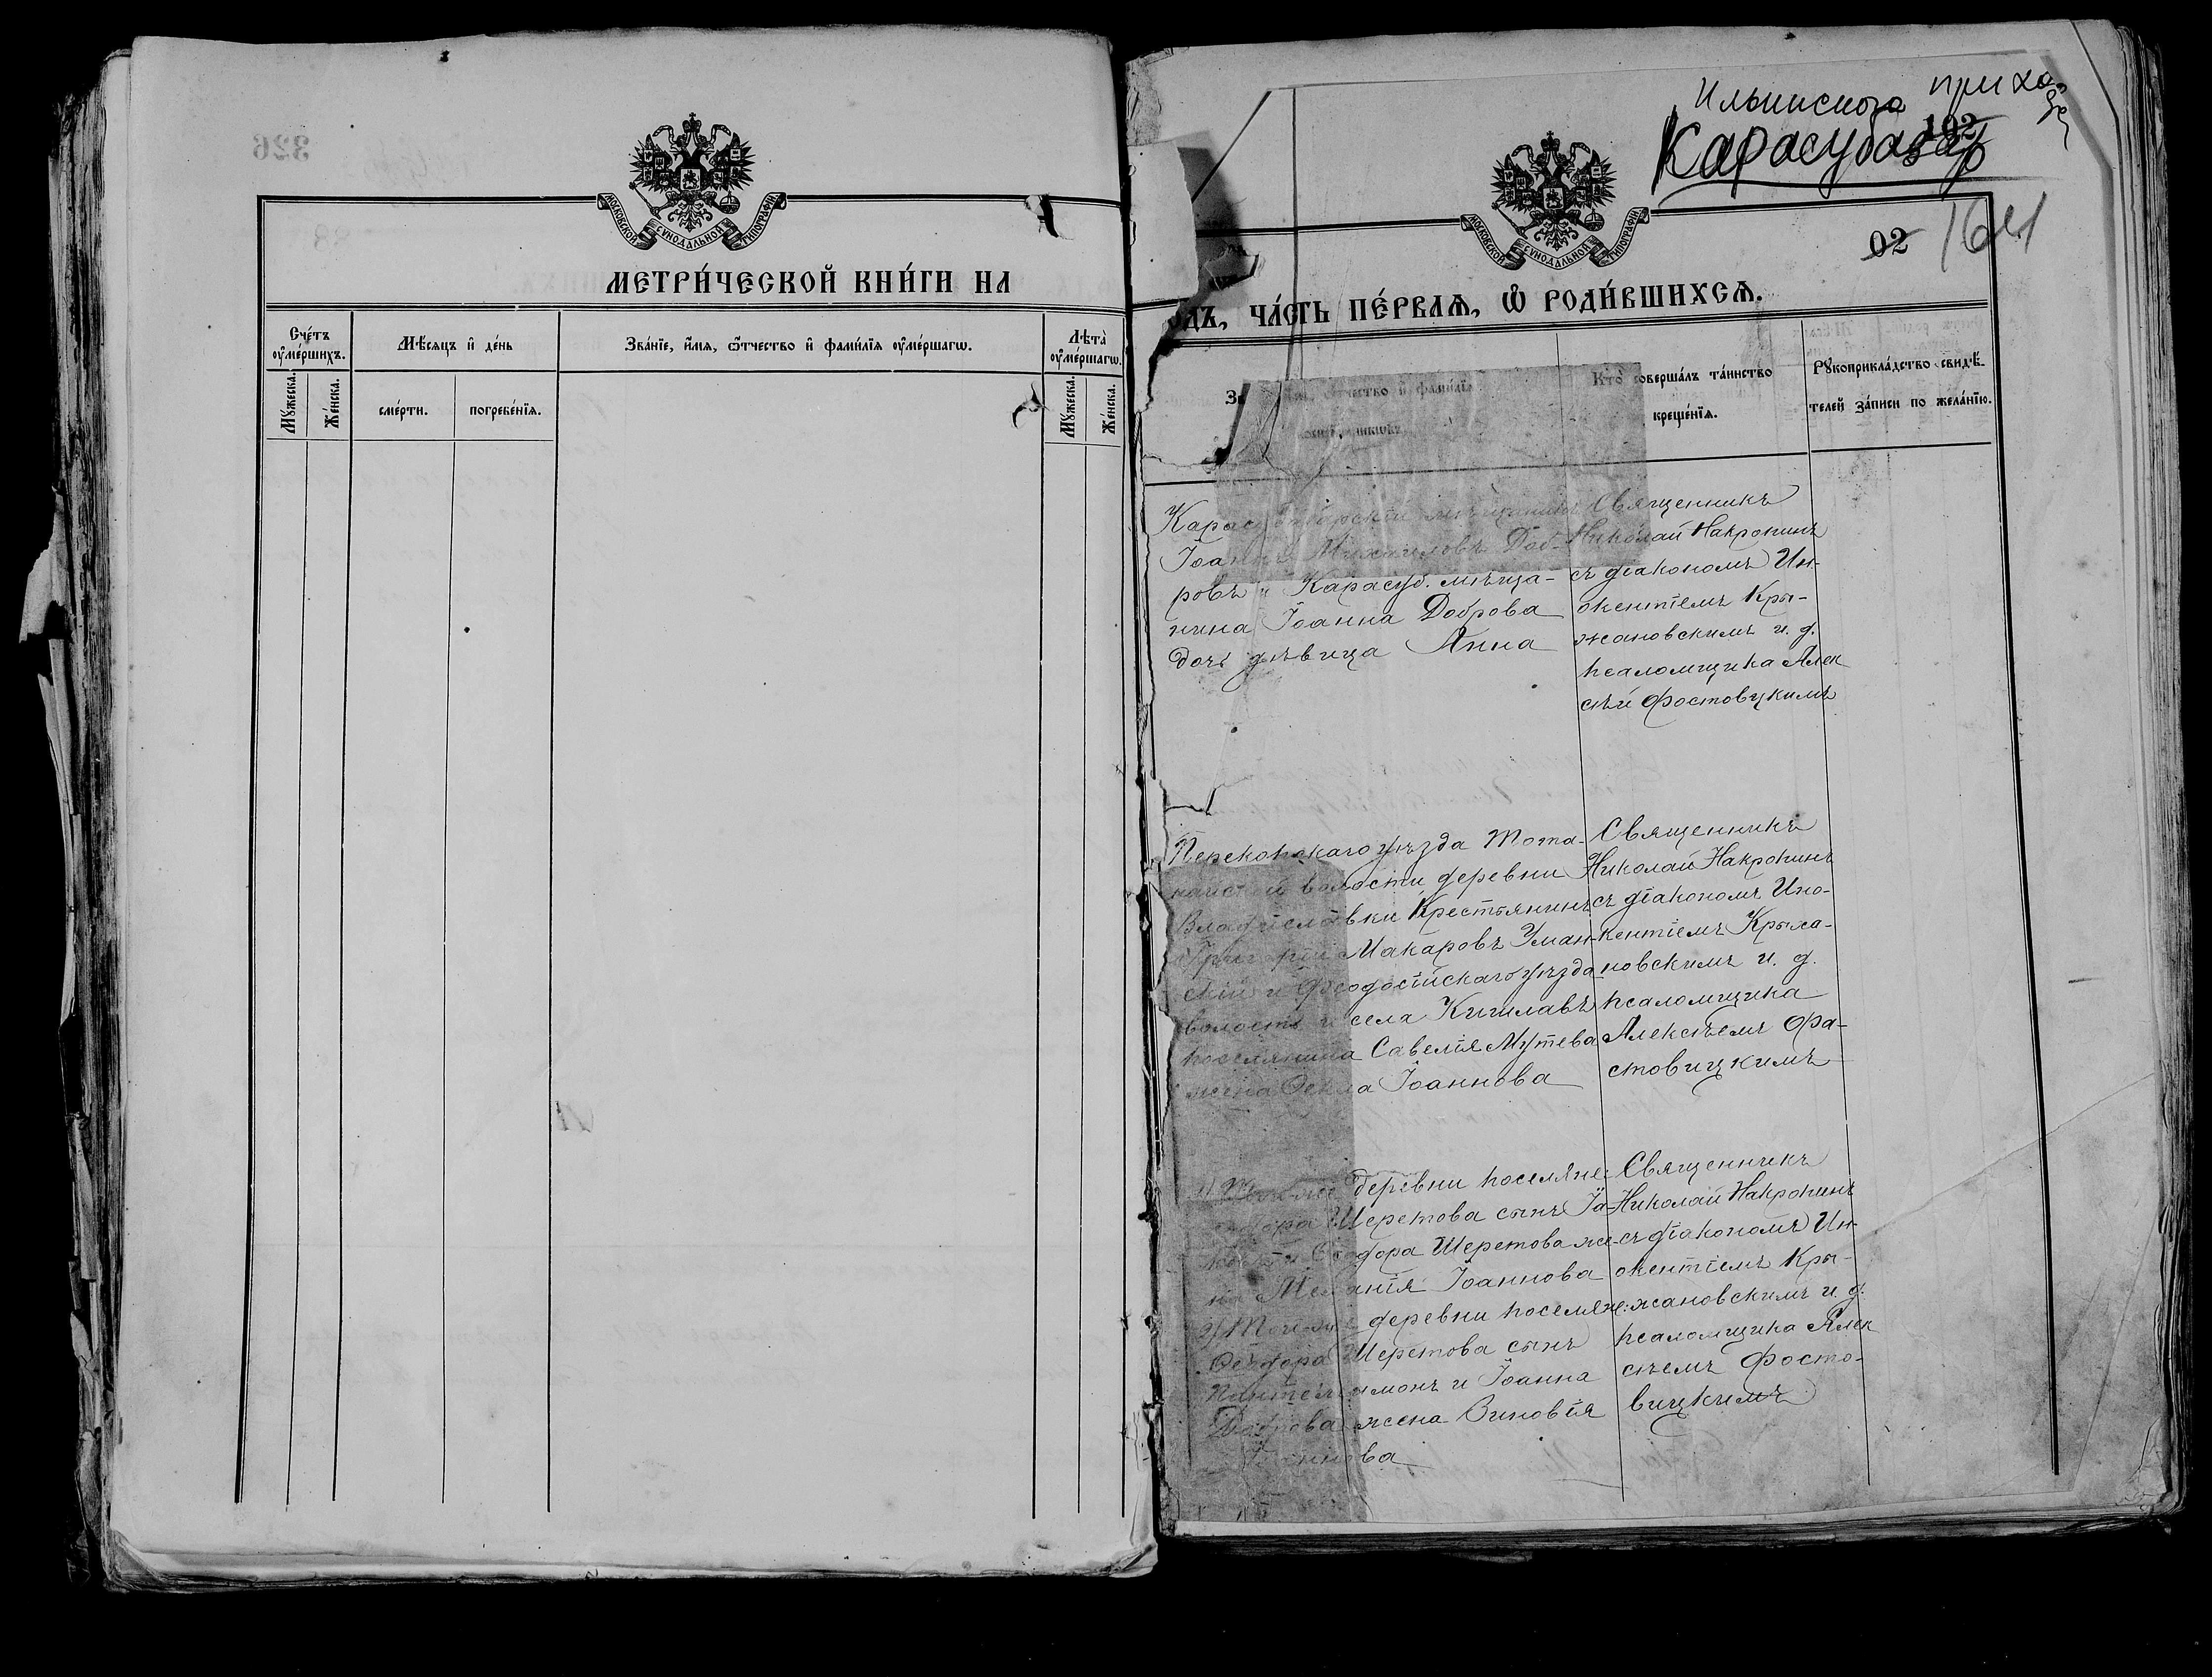 МОСКОВСКОЙ СѴНОДАЛЬНОЙ ТИПОГРАФІИ
МЕТРИ́ЧЕСКОЙ КНИ́ГИ НА
Сче́тъ ᲂу҆ме́ршихъ.
Мѣ́сяцъ и҆ де́нь
Зва́нїе, и҆́мѧ, ѻ҆́тчество и҆ фами́лїѧ ᲂу҆ме́ршагѡ.
Лѣта̀ ᲂу҆ме́ршагѡ.
Мꙋ́жеска.
Же́нска.
сме́рти.
погребе́нїѧ.
Мꙋ́жеска.
Же́нска.
326
Ильинского прихода
Карасубазар
102
МОСКОВСКОЙ СѴНОДАЛЬНОЙ ТИПОГРАФІИ
02
ОДЪ, ЧА́СТЬ ПЕ́РВАѦ, Ѡ҆ РОДИ́ВШИХСѦ.
ѻ҆́тчество и҆ фами́лїѧ
Кто̀ соверша́лъ та́инство
креще́нїѧ.
Рꙋкоприкла́дство свидѣ́-
телей за́писи по жела́нїю.
Карасубазарскій мѣщанинъ
Іоаннъ Михаиловъ Доб-
ровъ и Карасуб. мѣща-
нина Іоанна Доброва
дочь дѣвица Анна
Священникъ
Николай Накропинъ
съ діакономъ Ин-
окентіемъ Кры-
жановскимъ и. д.
псаломщика Алек
сѣй Фостовицкимъ
Перекопскаго уѣзда Тота-
найской волости деревни
Владиславки Крестьянинъ
Григорій Макаровъ Уман-
скій и Ѳеодосійскаго уѣзда
волости и села Кишлавъ
поселянина Савелія Мутева
жена Ѳекла Іоаннова
Священникъ
Николай Накропинъ
съ діакономъ Ино-
кентіемъ Крыжа-
новскимъ и. д.
псаломщика
Алексѣемъ Фа-
стовицкимъ
деревни поселяне:
Шеретова сынъ Іа-
Ѳеодора Шеретова же-
на Меланія Іоаннова
2) Той-же деревни поселяне:
Ѳеодора Шеретова сынъ
Пантелеимонъ и Іоанна
Доброва жена Зиновія
Іоаннова
Священникъ
Николай Накропинъ
съ діакономъ Ин-
окентіемъ Кры-
жановскимъ и. д.
псаломщика Алек
сѣемъ Фосто-
вицкимъ